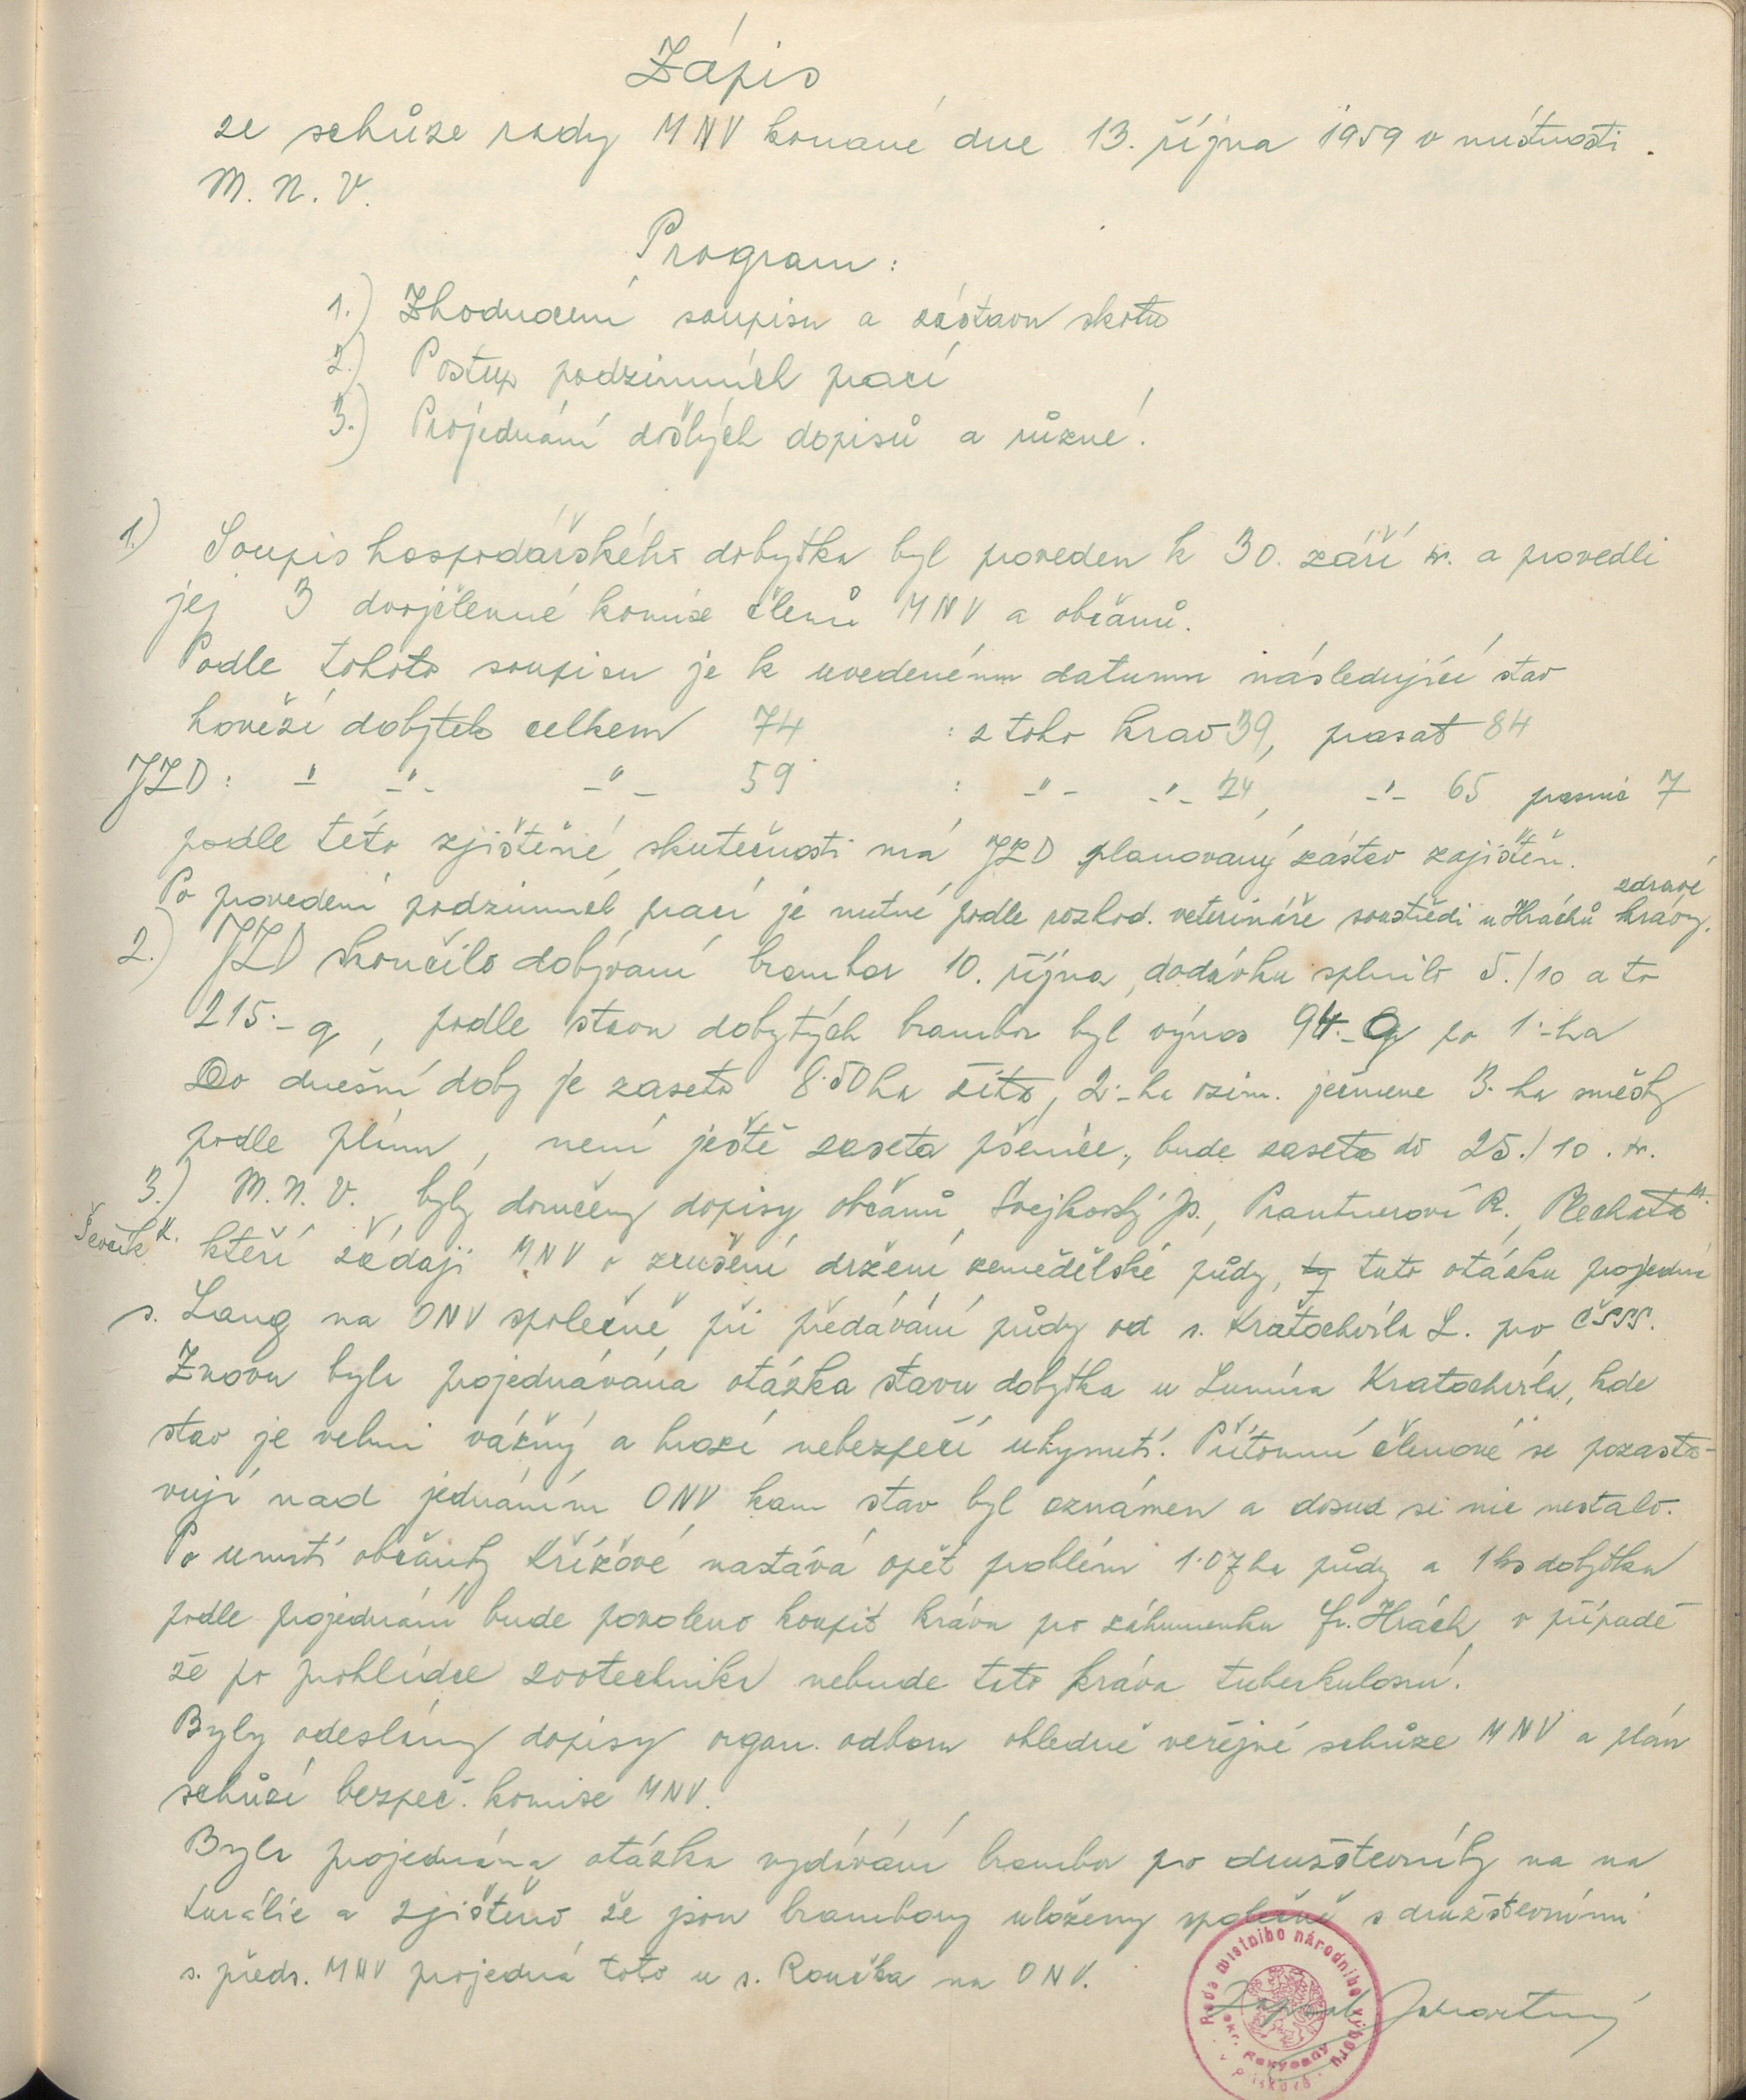 Zápis
ze schůze rady MNV konané dne 13. října 1959 v místnosti
M. N. V.
Program:
1.) Zhodnocení soupisu a zástavu skotu
2.) Postup podzimních prací
3.) Projednání došlých dopisů a různé.
1.) Soupis hospodářského dobytka byl proveden k 30. září tr. a provedli
jej 3 dvojčlenné komise členů MNV a občanů.
Podle tohoto soupisu je k uvedenému datumu následující stav
hovězí dobytek celkem 74 : z toho krav 39, prasat 84
JZD: -"- -"- -"- 59 : -"- -"- 24, -"- 65 prasnic 7
podle této zjištěné skutečnosti má JZD planovaný zástav zajištěn.
Po provedení podzimních prací je nutné podle rozhod. veterináře soustředi u Hráchů zdravé krávy.
2.) JZD skončilo dobývání brambor 10. října, dodávku splnilo 5./10 a to
215.- q, podle stavu dobytých brambor byl výnos 94.- q po 1.- ha
Do dnešní doby je zaseto 8.50 ha žita, 2.- ha ozim. ječmene 3. ha směsky
podle plánu, není ještě zaseta pšenice, bude zaseta do 25./10. tr.
3.) M. N. V. byly doručeny dopisy občanů, Švejkovský Js., Prantnerová R., Plechatá M.
Ševčík K. kteří žádají MNV o zrušení držení zemědělské půdy, tuto otázku projedná
s. Lang na ONV společně při předávání půdy od s. Kratochvíla L. pro ČSSS.
Znovu byla projednávána otázka stavu dobytka u Lumíra Kratochvíla, kde
stav je velmi vážný a hrozí nebezpečí uhynutí. Přítomní členové se pozasta-
vují nad jednáním ONV kam stav byl oznámen a dosud se nic nestalo.
Po úmrtí občanky Křížové nastává opět problém 1.07 ha půdy a 1 ks dobytka
podle projednání bude povoleno koupit krávu pro záhumenku fr. Hrách v případě
že po prohlídce zootechnika nebude tato kráva tuberkulosní.
Byly odeslány dopisy organ. odboru ohledně veřejné schůze MNV a plán
schůzí bezpeč. komise MNV.
Byla projednána otázka vydávání brambor pro družstevníky na na
turálie a zjištěno že jsou brambory uloženy společně s družstevními
s. předs. MNV projedná toto u s. Roučka na ONV.
Zapsal
Rada místního národního výboru
okr. Rokycany